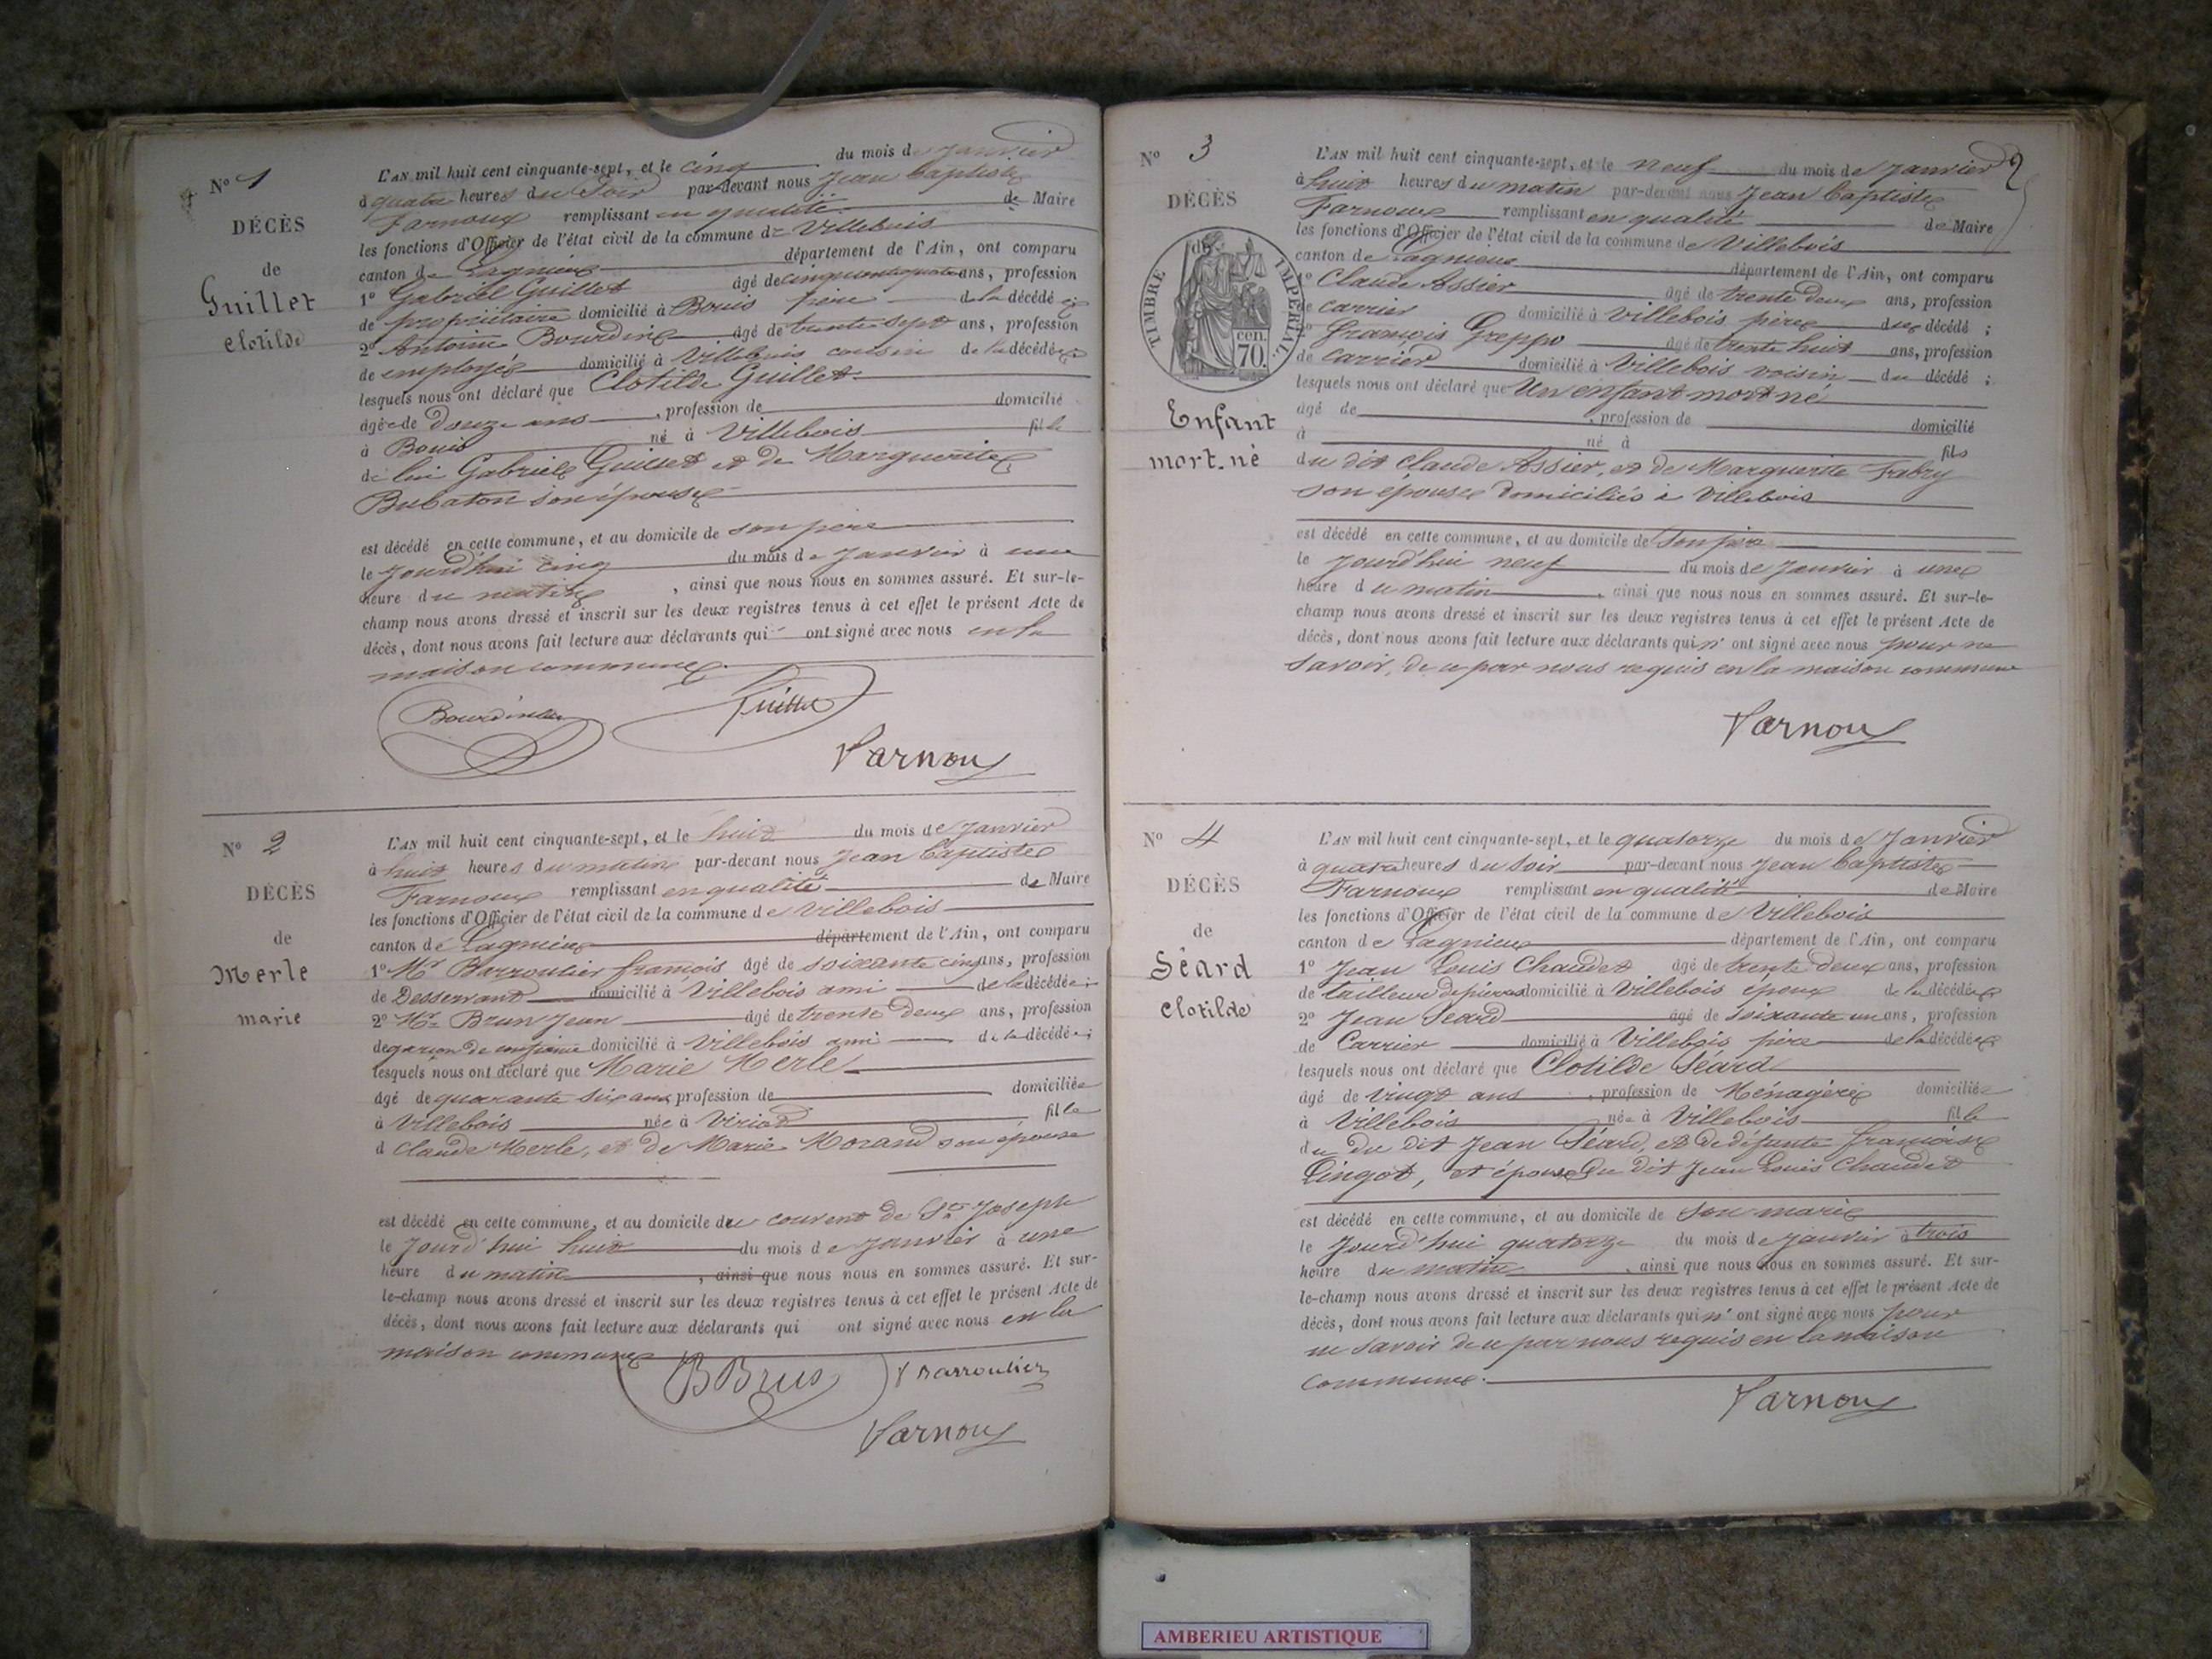 N° 1
DÉCÈS
de
Guillet
Clotilde
L'AN mil huit cent cinquante-sept, et le cinq du mois de Janvier
à quatre heures du Soir par-devant nous Jean Baptiste
Farnoux remplissant en qualité de Maire
les fonctions d'Officier de l'état civil de la commune de Villebois
canton de Lagnieu département de l'Ain, ont comparu
1° Gabriel Guillet âgé de cinquante quatre ans, profession
de propriétaire domicilié à Bouis père de la décédée
2° Antoine Bourdin âgé de trente sept ans, profession
de employé domicilié à Villebois cousin de la décédée
lesquels nous ont déclaré que Clotilde Guillet
âgée de douze ans, profession de domicilié
à Bouis né à Villebois fille
de lui Gabriel Guillet et de Marguerite
Bubaton son épouse
est décédé en cette commune, et au domicile de son père
le jourd'hui cinq du mois de Janvier à une
heure du matin, ainsi que nous nous en sommes assuré. Et sur-le-
champ nous avons dressé et inscrit sur les deux registres tenus à cet effet le présent Acte de
décès, dont nous avons fait lecture aux déclarants qui ont signé avec nous en la
maison commune.
Guillet
Farnoux
N° 2
DÉCÈS
de
Merle
marie
L'AN mil huit cent cinquante-sept, et le huit du mois de Janvier
à huit heures du matin par-devant nous Jean Baptiste
Farnoux remplissant en qualité de Maire
les fonctions d'Officier de l'état civil de la commune de Villebois
canton de Lagnieu département de l'Ain, ont comparu
1° Mr Barroulier françois âgé de soixante cinq ans, profession
de Desservant domicilié à Villebois ami de la décédée;
2° Mr Brun Jean âgé de trente deux ans, profession
de garçon de confiance domicilié à Villebois ami de la décédée;
lesquels nous ont déclaré que Marie Merle
âgé de quarante six ans, profession de domiciliée
à Villebois née à Viriat fille
d Claude Merle, et de Marie Morand son épouse
est décédé en cette commune, et au domicile du couvent de St Joseph
le Jourd'hui huit du mois de Janvier à une
heure du matin, ainsi que nous nous en sommes assuré. Et sur-
le-champ nous avons dressé et inscrit sur les deux registres tenus à cet effet le présent Acte de
décès, dont nous avons fait lecture aux déclarants qui ont signé avec nous en la
maison commune
Barroulier
Farnoux
2
N° 3
DÉCÈS
de
TIMBRE IMPÉRIAL
cen.
70.
Enfant
mort-né
L'AN mil huit cent cinquante-sept, et le neuf du mois de Janvier
à huit heures du matin par-devant nous Jean Baptiste
Farnoux remplissant en qualité de Maire
les fonctions d'Officier de l'état civil de la commune de Villebois
canton de Lagnieu département de l'Ain, ont comparu
1° Claude Assier âgé de trente deux ans, profession
de carrier domicilié à Villebois père du décédé;
2° François Greppo âgé de trente huit ans, profession
de carrier domicilié à Villebois voisin du décédé;
lesquels nous ont déclaré que Un enfant mort né
âgé de, profession de domicilié
à né à fils
du dit Claude Assier, et de Marguerite Fabry
son épouse domiciliés à Villebois
est décédé en cette commune, et au domicile de Son père
le Jourd'hui neuf du mois de Janvier à une
heure du matin, ainsi que nous nous en sommes assuré. Et sur-le-
champ nous avons dressé et inscrit sur les deux registres tenus à cet effet le présent Acte de
décès, dont nous avons fait lecture aux déclarants qui n'ont signé avec nous pour ne
savoir, de ce par nous requis en la maison commune
Farnoux
N° 4
DÉCÈS
de
Séard
Clotilde
L'AN mil huit cent cinquante-sept, et le quatorze du mois de Janvier
à quatre heures du Soir par-devant nous Jean Baptiste
Farnoux remplissant en qualité de Maire
les fonctions d'Officier de l'état civil de la commune de Villebois
canton de Lagnieu département de l'Ain, ont comparu
1° Jean Louis Chaudet âgé de trente deux ans, profession
de tailleur de pierres domicilié à Villebois époux de la décédée
2° Jean Séard âgé de Soixante un ans, profession
de Carrier domicilié à Villebois père de la décédée
lesquels nous ont déclaré que Clotilde Séard
âgé de vingt ans, profession de Ménagère domiciliée
à Villebois née à Villebois fille
du du dit Jean Séard, et de défunte françoise
Lingot, et épouse du dit Jean Louis Chaudet
est décédé en cette commune, et au domicile de Son mari
le Jourd'hui quatorze du mois de Janvier à trois
heure du matin, ainsi que nous nous en sommes assuré. Et sur-
le-champ nous avons dressé et inscrit sur les deux registres tenus à cet effet le présent Acte de
décès, dont nous avons fait lecture aux déclarants qui n'ont signé avec nous pour
ne savoir de ce par nous requis en la maison
commune.
Farnoux
AMBERIEU ARTISTIQUE